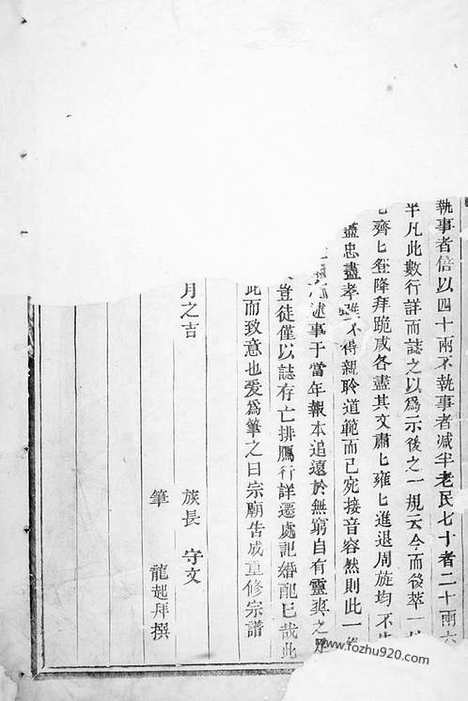 執事者倍以四十兩不執事者減半老民七十者二十兩
半凡此數行詳而誌之以爲示後之一規云今而後萃一
齊匕登降拜跪咸各盡其文肅匕雍匕進退周旋均不
盡忠盡孝雖不得親聆道範而已宛接音容然則此一
述事于當年報本追遠於無窮自有靈爽之
登徒僅以誌存亡排鴈行詳遷處記婚配已哉此
此而致意也爰爲筆之曰宗廟告成重修宗譜
月之吉
族長 守文
筆 龍起拜撰
www.fozhu920.com